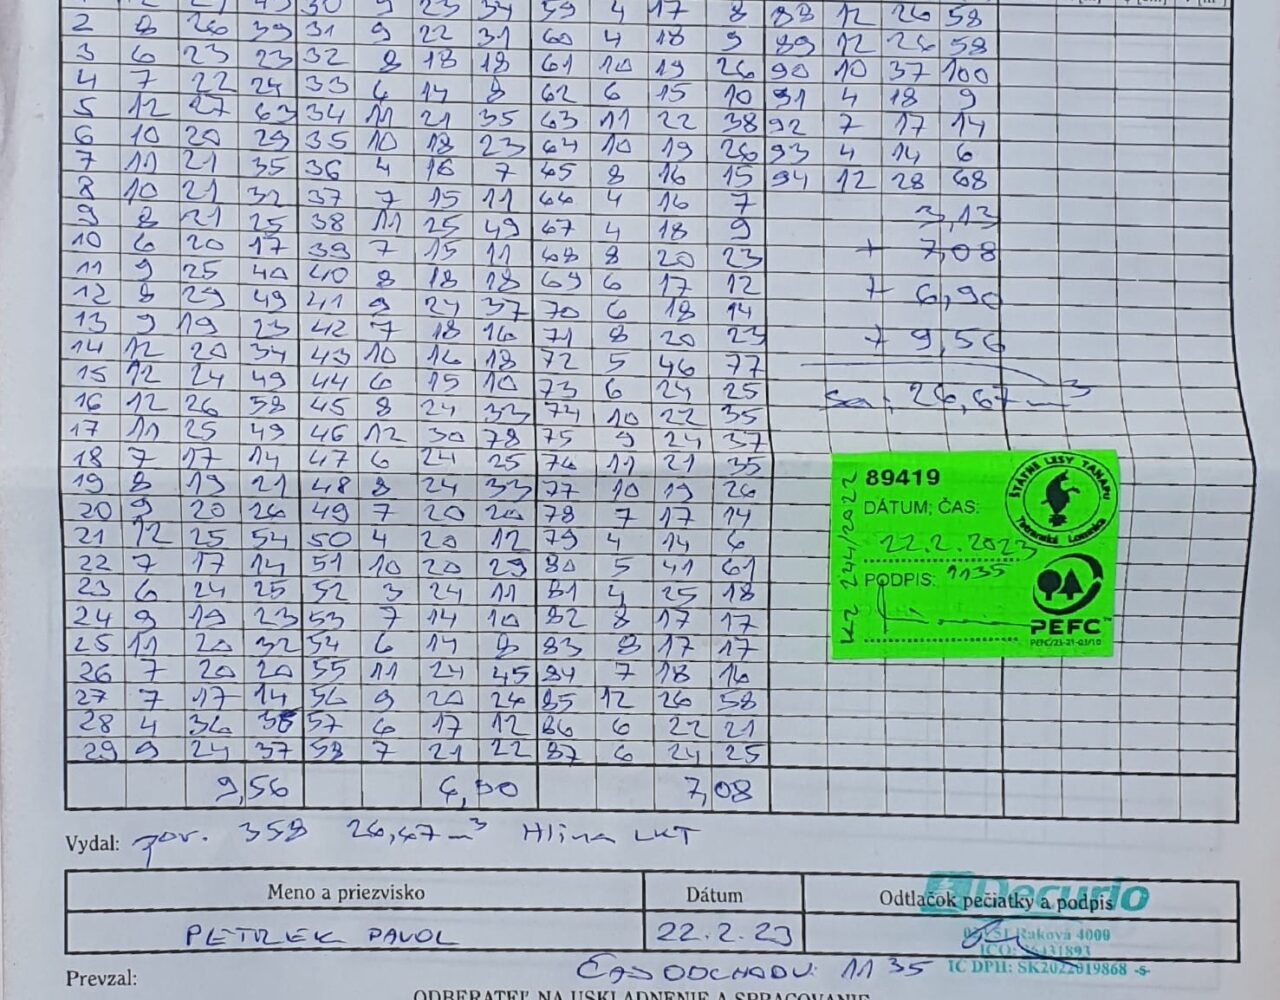 1 12 24 49 30 9 23 34 59 4 17 8 88 12 26 58
2 8 26 39 31 9 22 31 60 4 18 9 89 12 26 58
3 6 23 23 32 8 18 18 61 10 19 26 90 10 37 100
4 7 22 24 33 6 14 8 62 6 15 10 91 4 18 9
5 12 27 63 34 11 21 35 63 11 22 38 92 7 17 14
6 10 20 29 35 10 18 23 64 10 19 26 93 4 14 6
7 11 21 35 36 4 16 7 65 8 16 15 94 12 28 68
8 10 21 32 37 7 15 11 66 4 16 7
3,13
9 8 21 25 38 11 25 49 67 4 18 9
10 6 20 17 39 7 15 11 68 8 20 23
+ 7,08
11 9 25 40 40 8 18 18 69 6 17 12
12 8 29 49 41 9 24 37 70 6 18 14
+ 6,90
13 9 19 23 42 7 18 16 71 8 20 23
+ 9,56
14 12 20 34 43 10 16 18 72 5 46 77
15 12 24 49 44 6 15 10 73 6 24 25
Sa: 26,67 m3
16 12 26 58 45 8 24 33 74 10 22 35
17 11 25 49 46 12 30 78 75 9 24 37
18 7 17 14 47 6 24 25 76 11 21 35
19 8 19 21 48 8 24 33 77 10 19 26
20 9 20 26 49 7 20 20 78 7 17 14
21 12 25 54 50 4 20 12 79 4 14 6
22 7 17 14 51 10 20 29 80 5 41 61
23 6 24 25 52 3 24 11 81 4 25 18
24 9 19 23 53 7 14 10 82 8 17 17
25 11 20 32 54 6 14 8 83 8 17 17
26 7 20 20 55 11 24 45 84 7 18 16
27 7 17 14 56 9 20 26 85 12 26 58
28 4 36 36 57 6 17 12 86 6 22 21
29 9 24 37 58 7 21 22 87 6 24 25
9,56 6,90 7,08
89419
DÁTUM; ČAS:
22.2.2023
PODPIS: 1135
KZ 244/2022
ŠTÁTNE LESY TANAPU
Tatranská Lomnica
PEFC™
PEFC/23-21-03/10
Vydal: por. 358 26,67 m3 Hlina LKT
Meno a priezvisko Dátum Odtlačok pečiatky a podpis
Decurio
PETRZEK PAVOL 22.2.23
Raková 4000
IČO: 36431893
IČ DPH: SK2022019868 -5-
ČAS ODCHODU: 11 35
Prevzal:
ODBERATEĽ NA USKLADNENIE A SPRACOVANIE